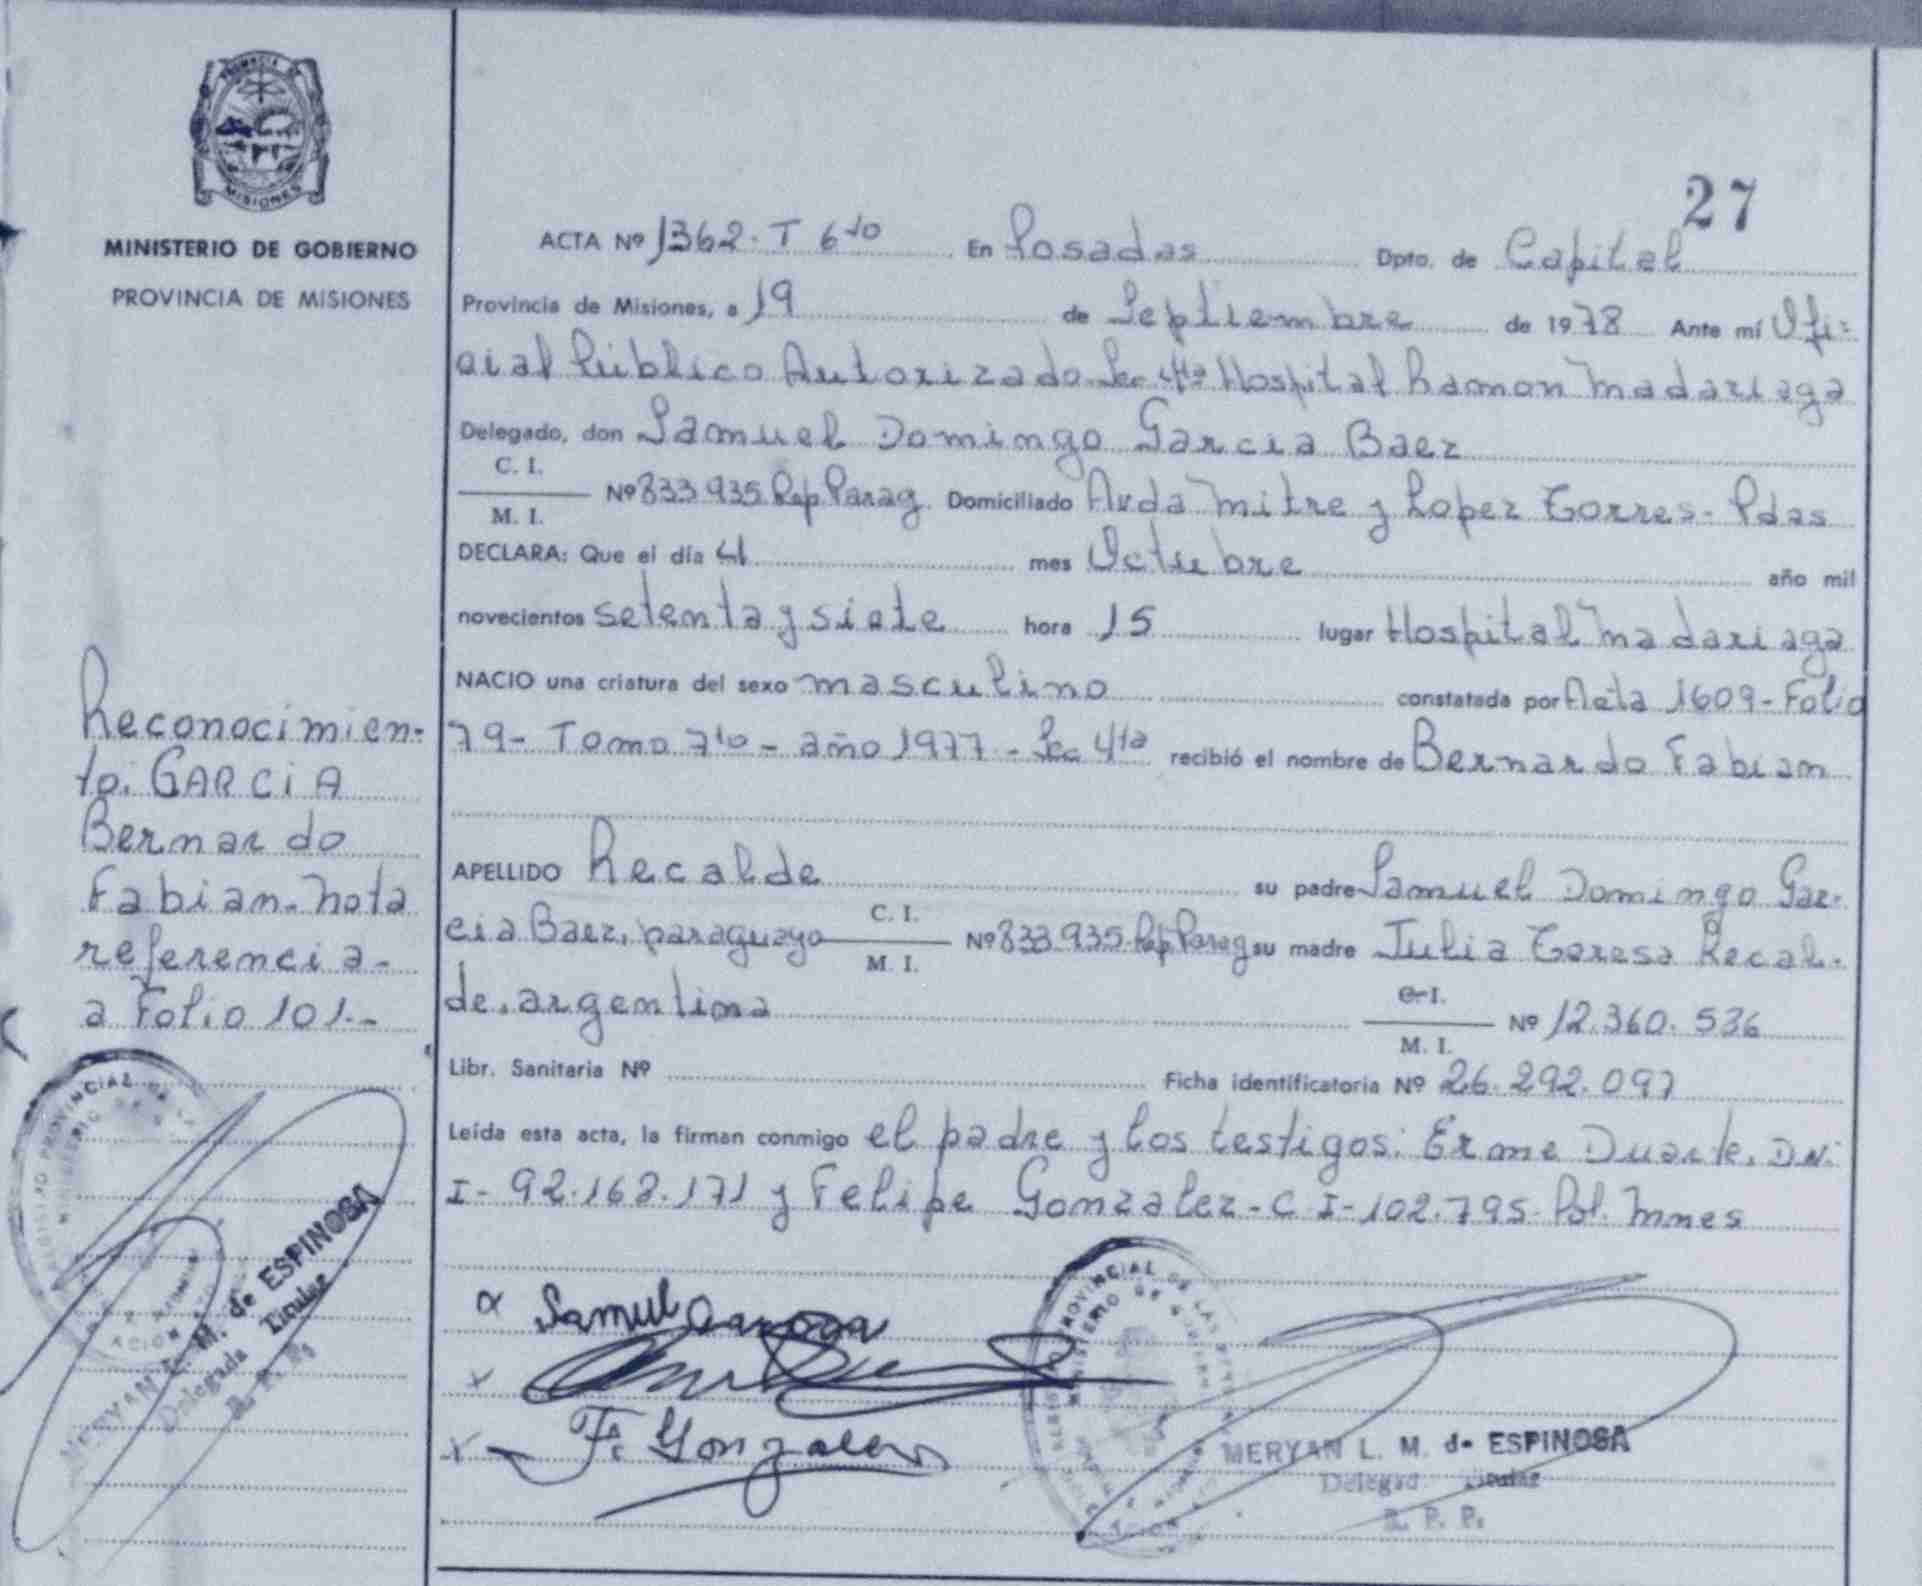 PROVINCIA DE
MISIONES
MINISTERIO DE GOBIERNO
PROVINCIA DE MISIONES
Reconocimien-
to: GARCIA
Bernardo
Fabian. Nota
referencia-
a Folio 101.-
MERYAN L. M. de ESPINOSA
Delegada Titular
R. P. P.
27
ACTA Nº 1362. T 6to En Posadas Dpto. de Capital
Provincia de Misiones, a 19 de Septiembre de 1978 Ante mí Ofi-
cial Público Autorizado Sec 4ta Hospital Ramon Madariaga
Delegado, don Samuel Domingo Garcia Baez
C. I.
M. I. Nº 833.935 Rep Parag. Domiciliado Avda Mitre y Lopez Torres - Pdas
DECLARA: Que el día 4 mes Octubre año mil
novecientos setenta y siete hora 15 lugar Hospital Madariaga
NACIO una criatura del sexo masculino constatada por Acta 1609 - Folio
79 - Tomo 7to - año 1977 - Sec 4ta recibió el nombre de Bernardo Fabian
APELLIDO Recalde su padre Samuel Domingo Gar-
cia Baez, paraguayo C. I. M. I. Nº 833.935 Rep Parag su madre Julia Teresa Recal-
de, argentina C. I. M. I. Nº 12.360.536
Libr. Sanitaria Nº Ficha identificatoria Nº 26.292.097
Leída esta acta, la firman conmigo el padre y los testigos: Erme Duarte, D.N.
I - 92.168.171 y Felipe Gonzalez - C.I - 102.795 Pol. Mnes
Samuel
F. Gonzalez
MERYAN L. M. de ESPINOSA
Delegada Titular
R. P. P.